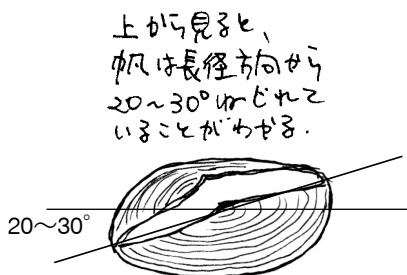 上から見ると、
帆は長径方向から
20〜30°ねじれて
いることがわかる.
20〜30°